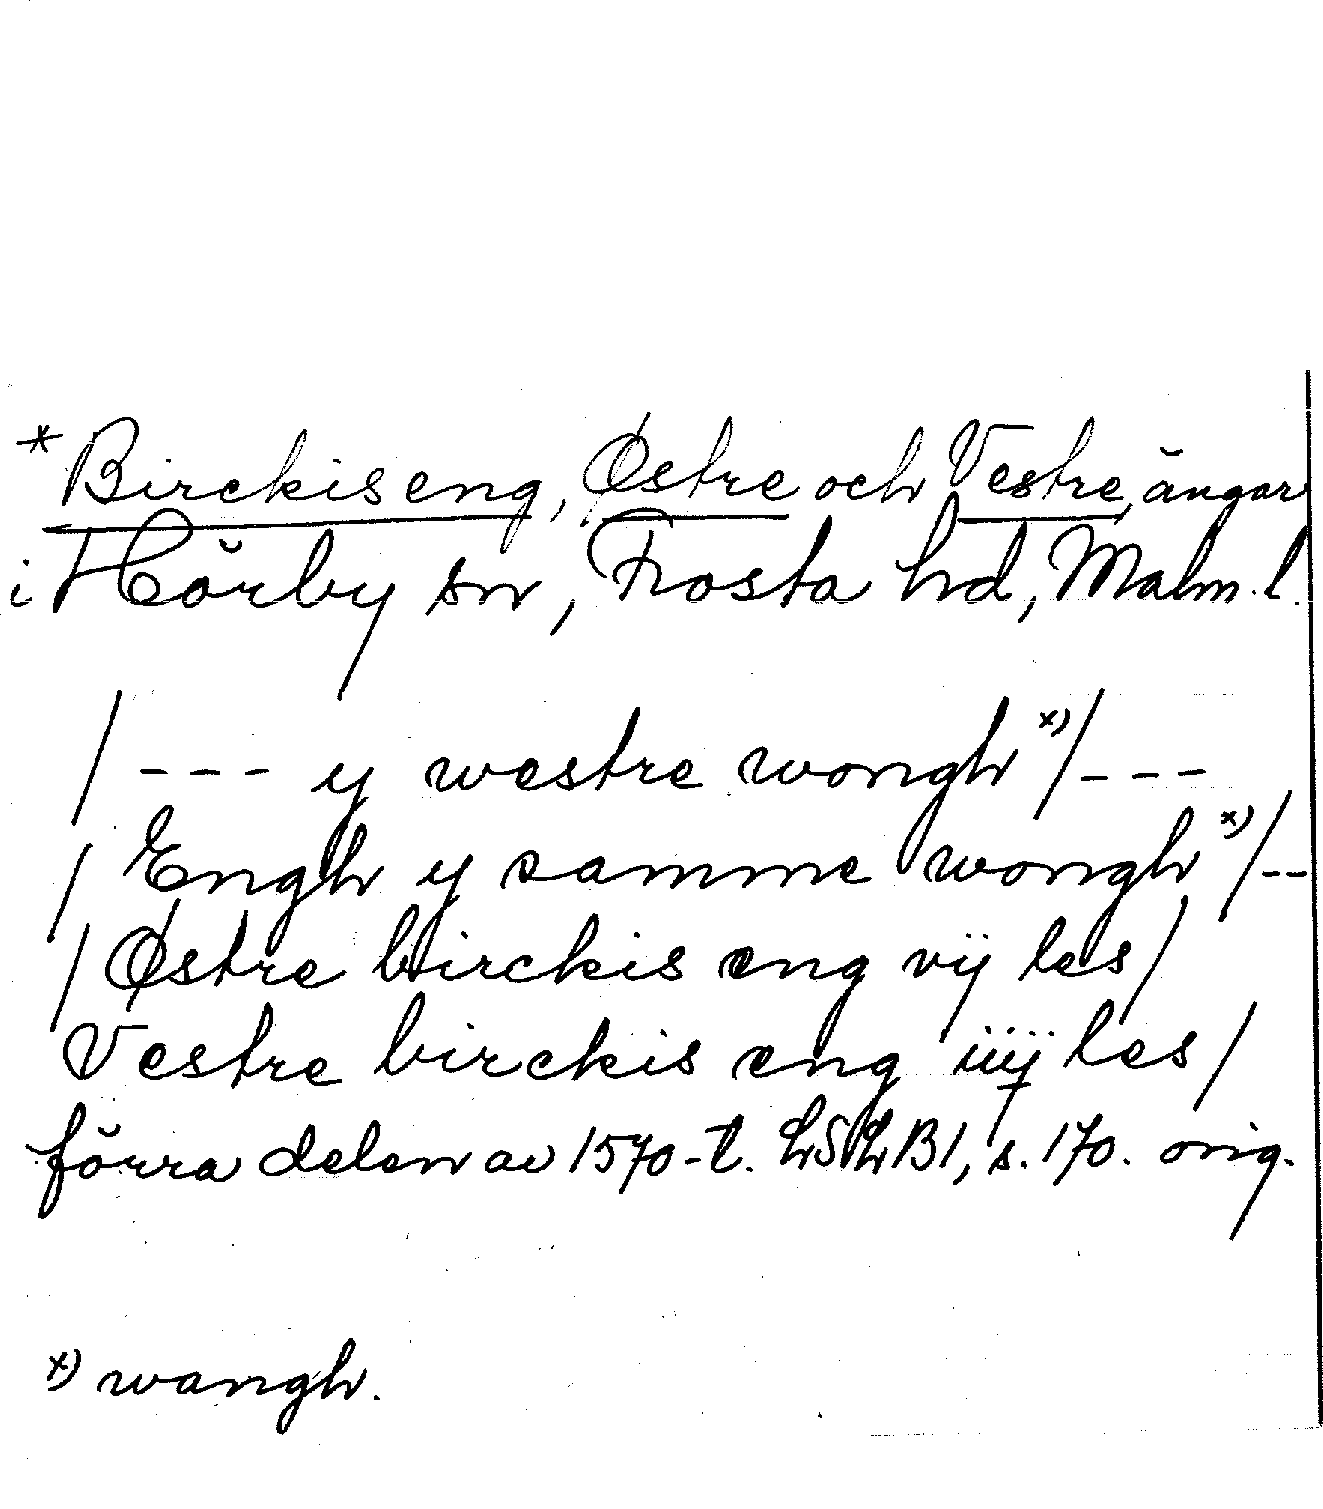 * Birckis eng, Østre och Vestre, ängar
i Hörby sn, Frosta hd, Malm. l.
/ - - - y westre wongh x) / - - -
/ Engh y samme wongh x) / - -
/ Østre birckis eng vij les /
Vestre birckis eng iiij les /
förra delen av 1570-t. LSLB1, s. 170. orig.
x) wangh.